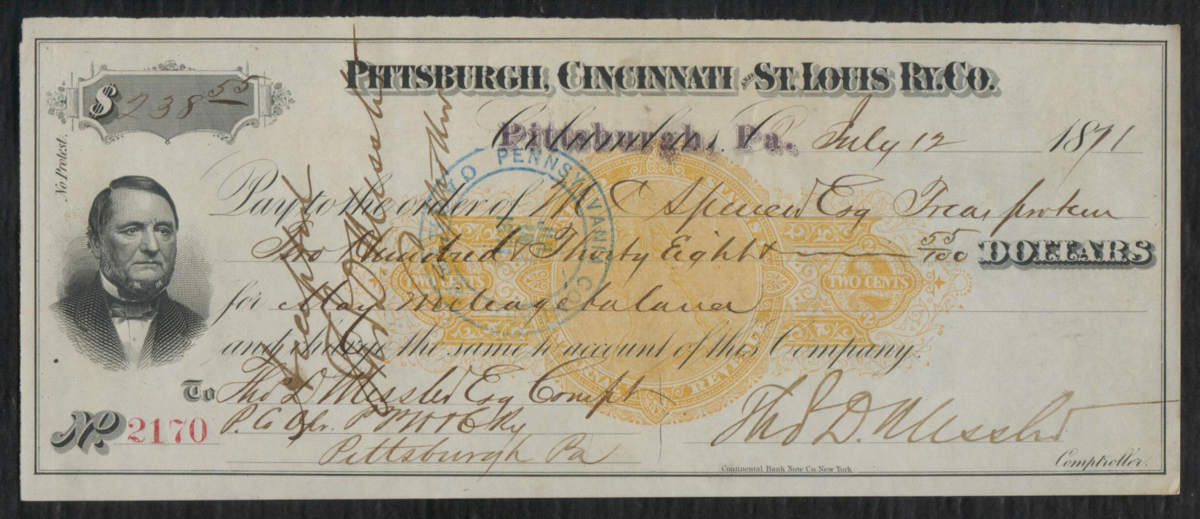 PITTSBURGH, CINCINNATI AND ST. LOUIS RY. CO.
$ 238 55
No Protest.
Pittsburgh, Pa. July 12 1871
Pay to the order of W C Spencer Esq Treas protem
Two Hundred & Thirty Eight 55/100 DOLLARS
for May mileage balance
and charge the same to account of this Company.
To Tho D Messler Esq Compt
No. 2170
P. Co Opr. P Ft W & C Ry
Pittsburgh Pa
Tho D. Messler
Comptroller.
Continental Bank Note Co. New York
Accepted
Tho D Messler
PENNSYLVANIA CO.
TWO CENTS
TWO CENTS
UNITED STATES
INTERNAL REVENUE